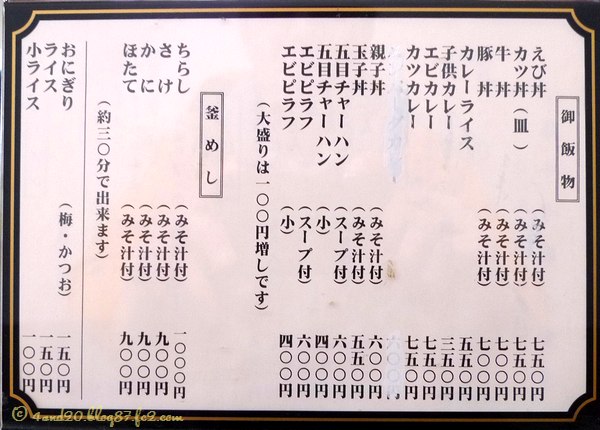 御飯物
えび丼 (みそ汁付) 七五〇円
カツ丼(皿) (みそ汁付) 七〇〇円
牛丼 (みそ汁付) 七〇〇円
豚丼 (みそ汁付) 七〇〇円
カレーライス 五五〇円
子供カレー 三五〇円
エビカレー 七五〇円
カツカレー 七五〇円
六〇〇円
親子丼 (みそ汁付) 六〇〇円
玉子丼 (みそ汁付) 五五〇円
五目チャーハン (スープ付) 六〇〇円
五目チャーハン (小) 四〇〇円
エビピラフ (スープ付) 六〇〇円
エビピラフ (小) 四〇〇円
(大盛りは一〇〇円増しです)
釜めし
ちらし (みそ汁付) 一〇〇〇円
さけ (みそ汁付) 九〇〇円
かに (みそ汁付) 九〇〇円
ほたて (みそ汁付) 九〇〇円
(約三〇分で出来ます)
おにぎり (梅・かつお) 一五〇円
ライス 一五〇円
小ライス 一〇〇円
© 4and20.blog87.fc2.com